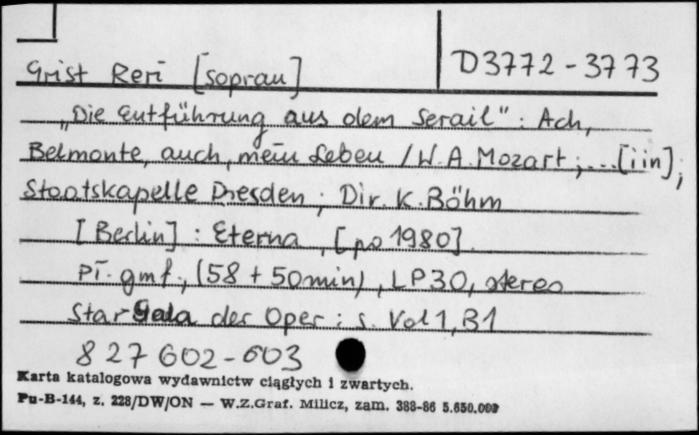 Grist Reri [sopran]
D3772-3773
„Die Entführung aus dem Serail": Ach,
Belmonte, auch, mein Leben / W. A. Mozart ; ... [iin] ;
Staatskapelle Dresden ; Dir. K. Böhm
[Berlin] : Eterna, [po 1980].
Pł. gmf., (58 + 50min), LP30, stereo
Star Gala der Oper : s. Vol 1, B1
8 27 602-603
Karta katalogowa wydawnictw ciągłych i zwartych.
Pu-B-144, z. 228/DW/ON — W.Z.Graf. Milicz, zam. 388-86 5.650.000